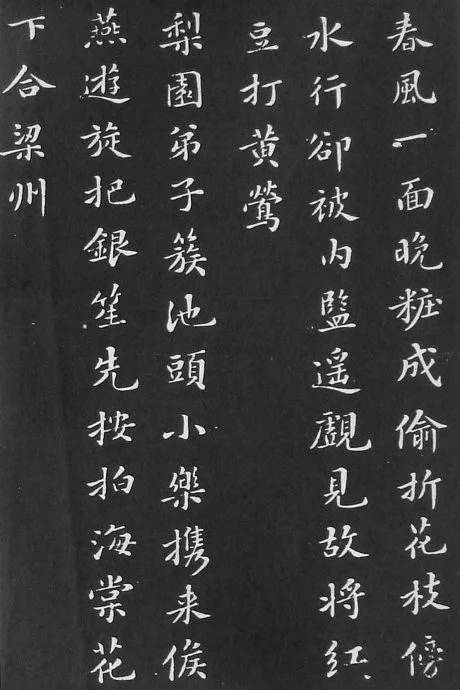 春風一面晚粧成偷折花枝傍
水行卻被內監遥覷見故將紅
豆打黄鶯
梨園弟子簇池頭小樂攜来俟
燕遊旋把銀笙先按拍海棠花
下合梁州